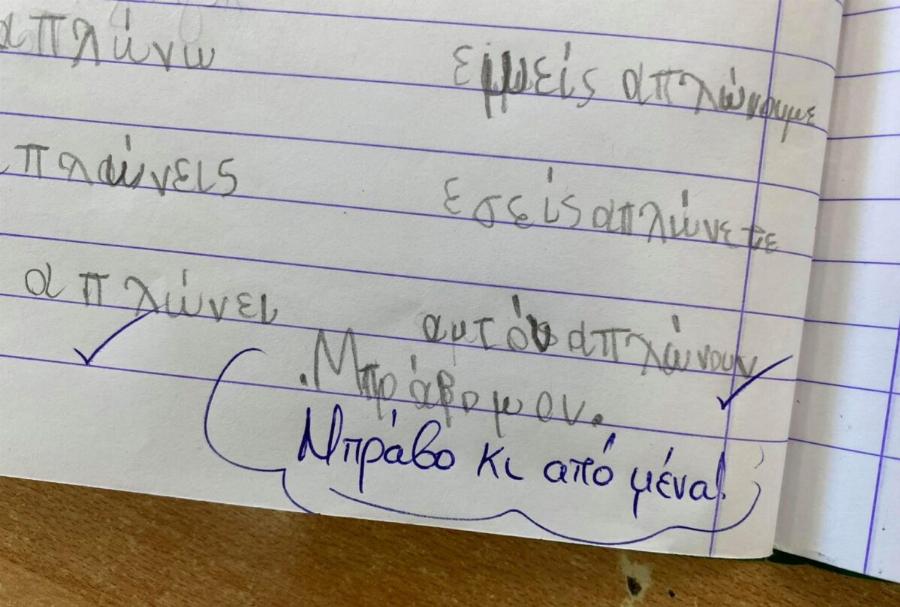 απλώνω εμμείς απλώνουμε
πλώνεις εσείς απλώνετε
απλώνει αυτόν απλώνουν
Μπράβο μου.
Μπράβο κι από μένα!